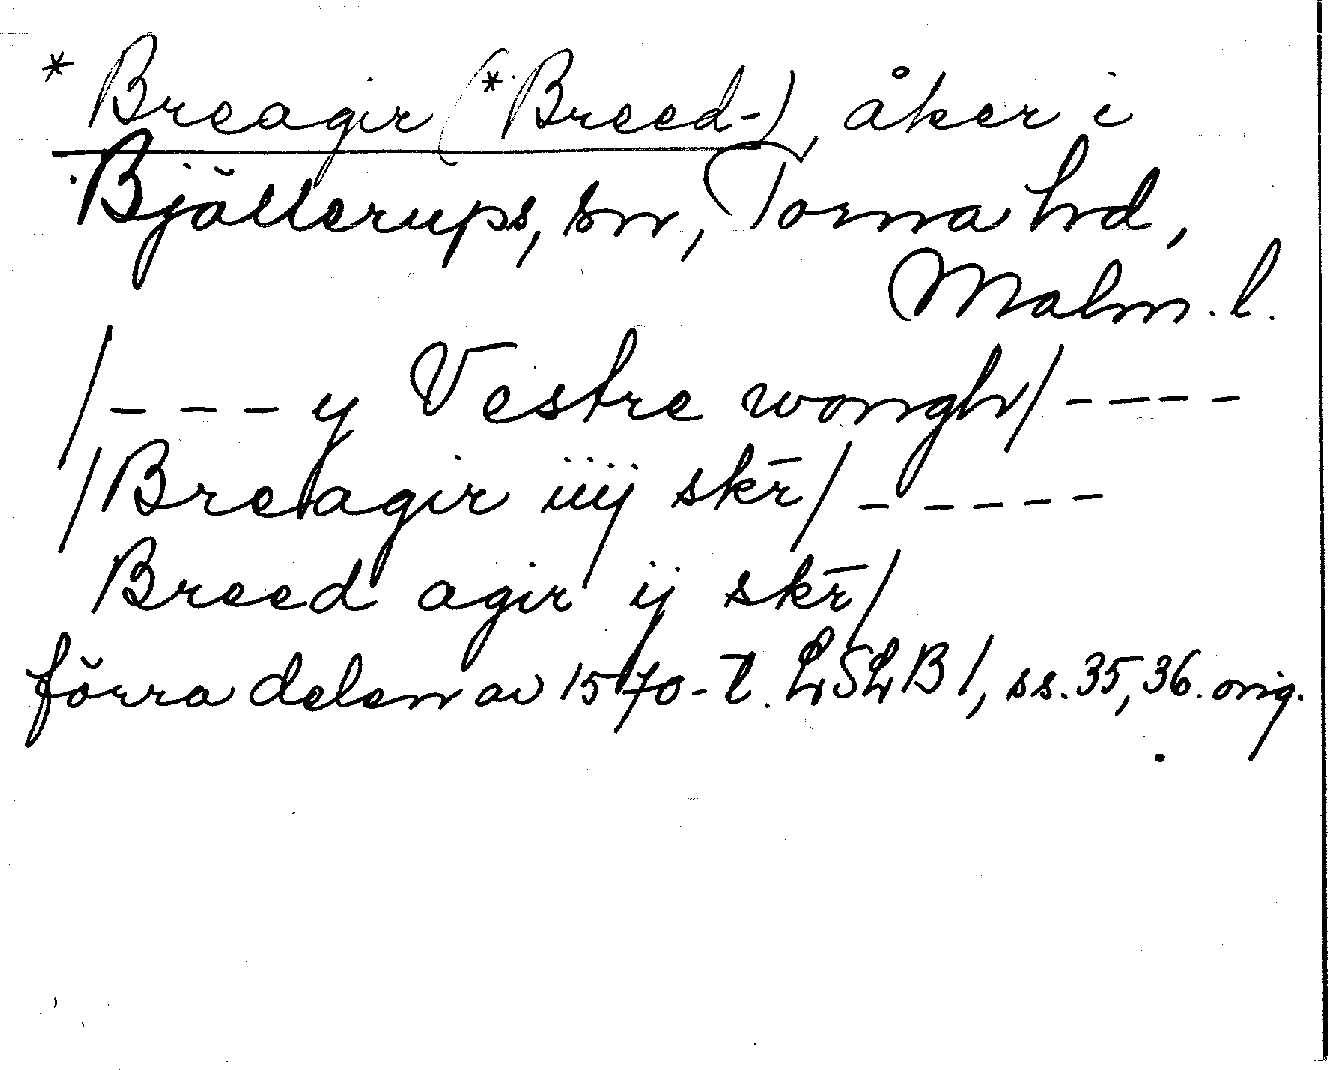 *Breagir (*Breed-), åker i
Bjällerups, sn, Torna hd,
Malm. l.
/--- y Vestre wongh/----
/Breagir iiij skr̄/-----
Breed agir ij skr̄/
förra delen av 1570-t. LSLB 1, ss. 35, 36. orig.